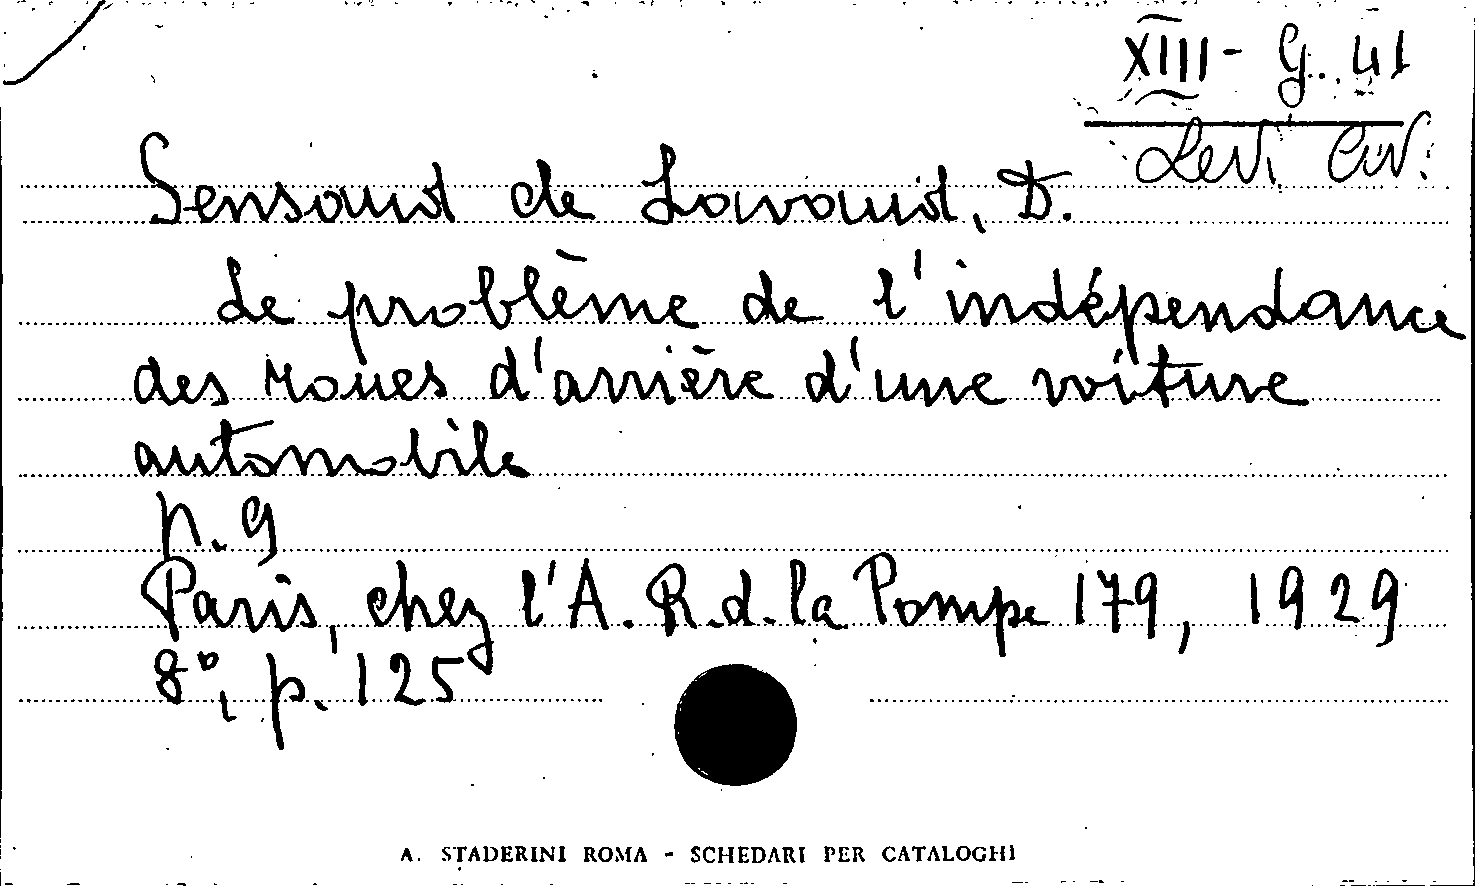 XIII - G. 41
Levi Civ.
Sensaud de Lavaud, D.
Le problème de l'indépendance
des roues d'arrière d'une voiture
automobile
p. 9
Paris, chez l'A. R. d. la Pompe 179, 1929
8°, p. 125
A. STADERINI ROMA - SCHEDARI PER CATALOGHI